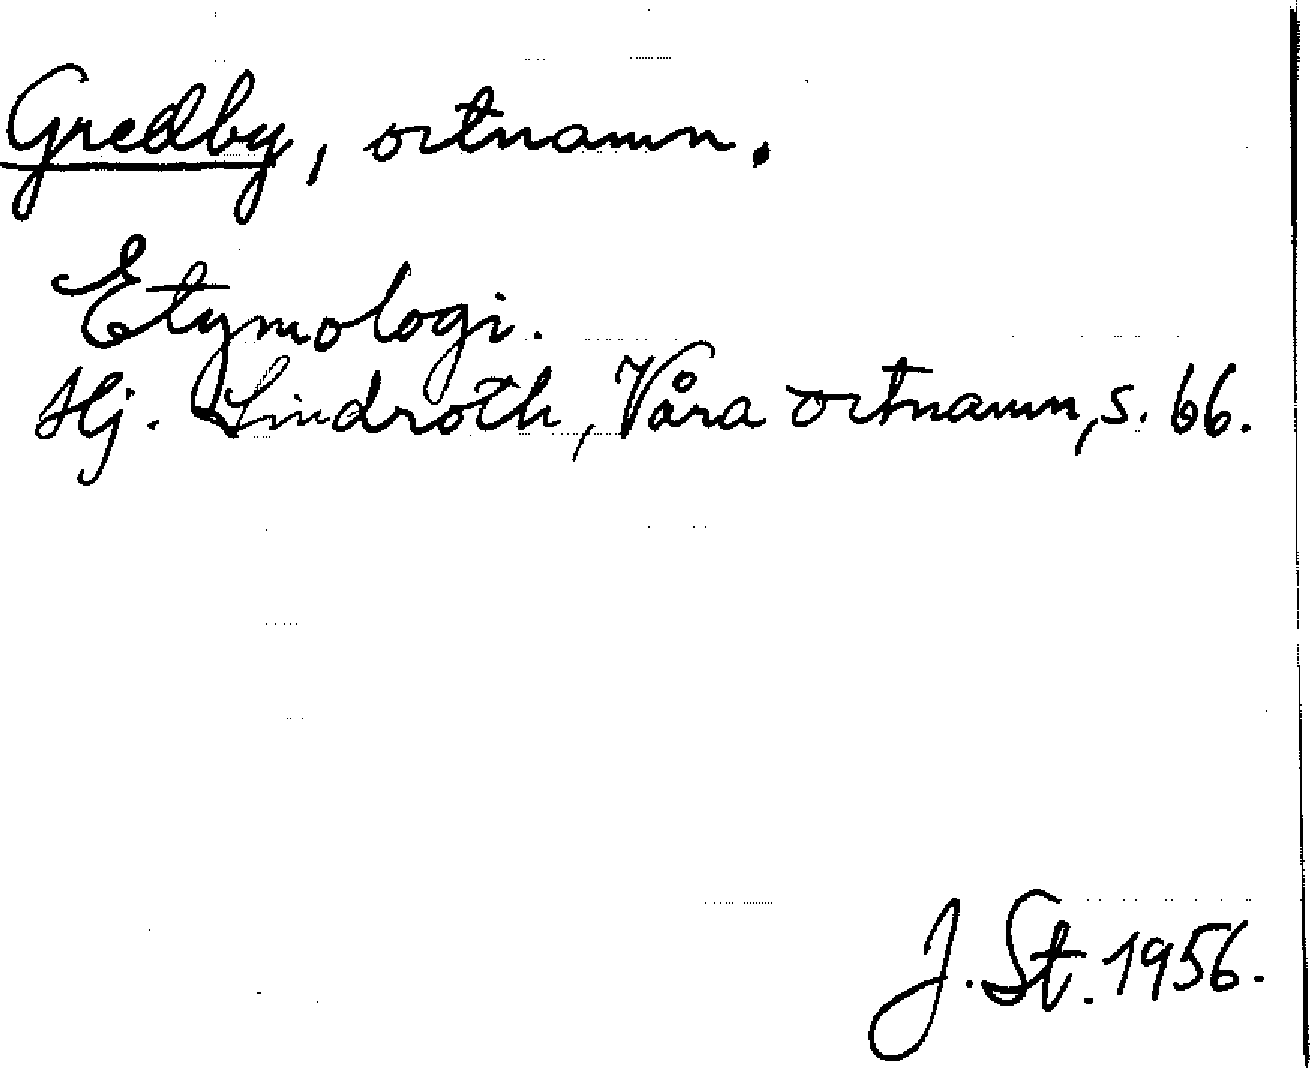 Gredby, ortnamn.
Etymologi.
Hj. Lindroth, Våra ortnamn, s. 66.
J. St. 1956.